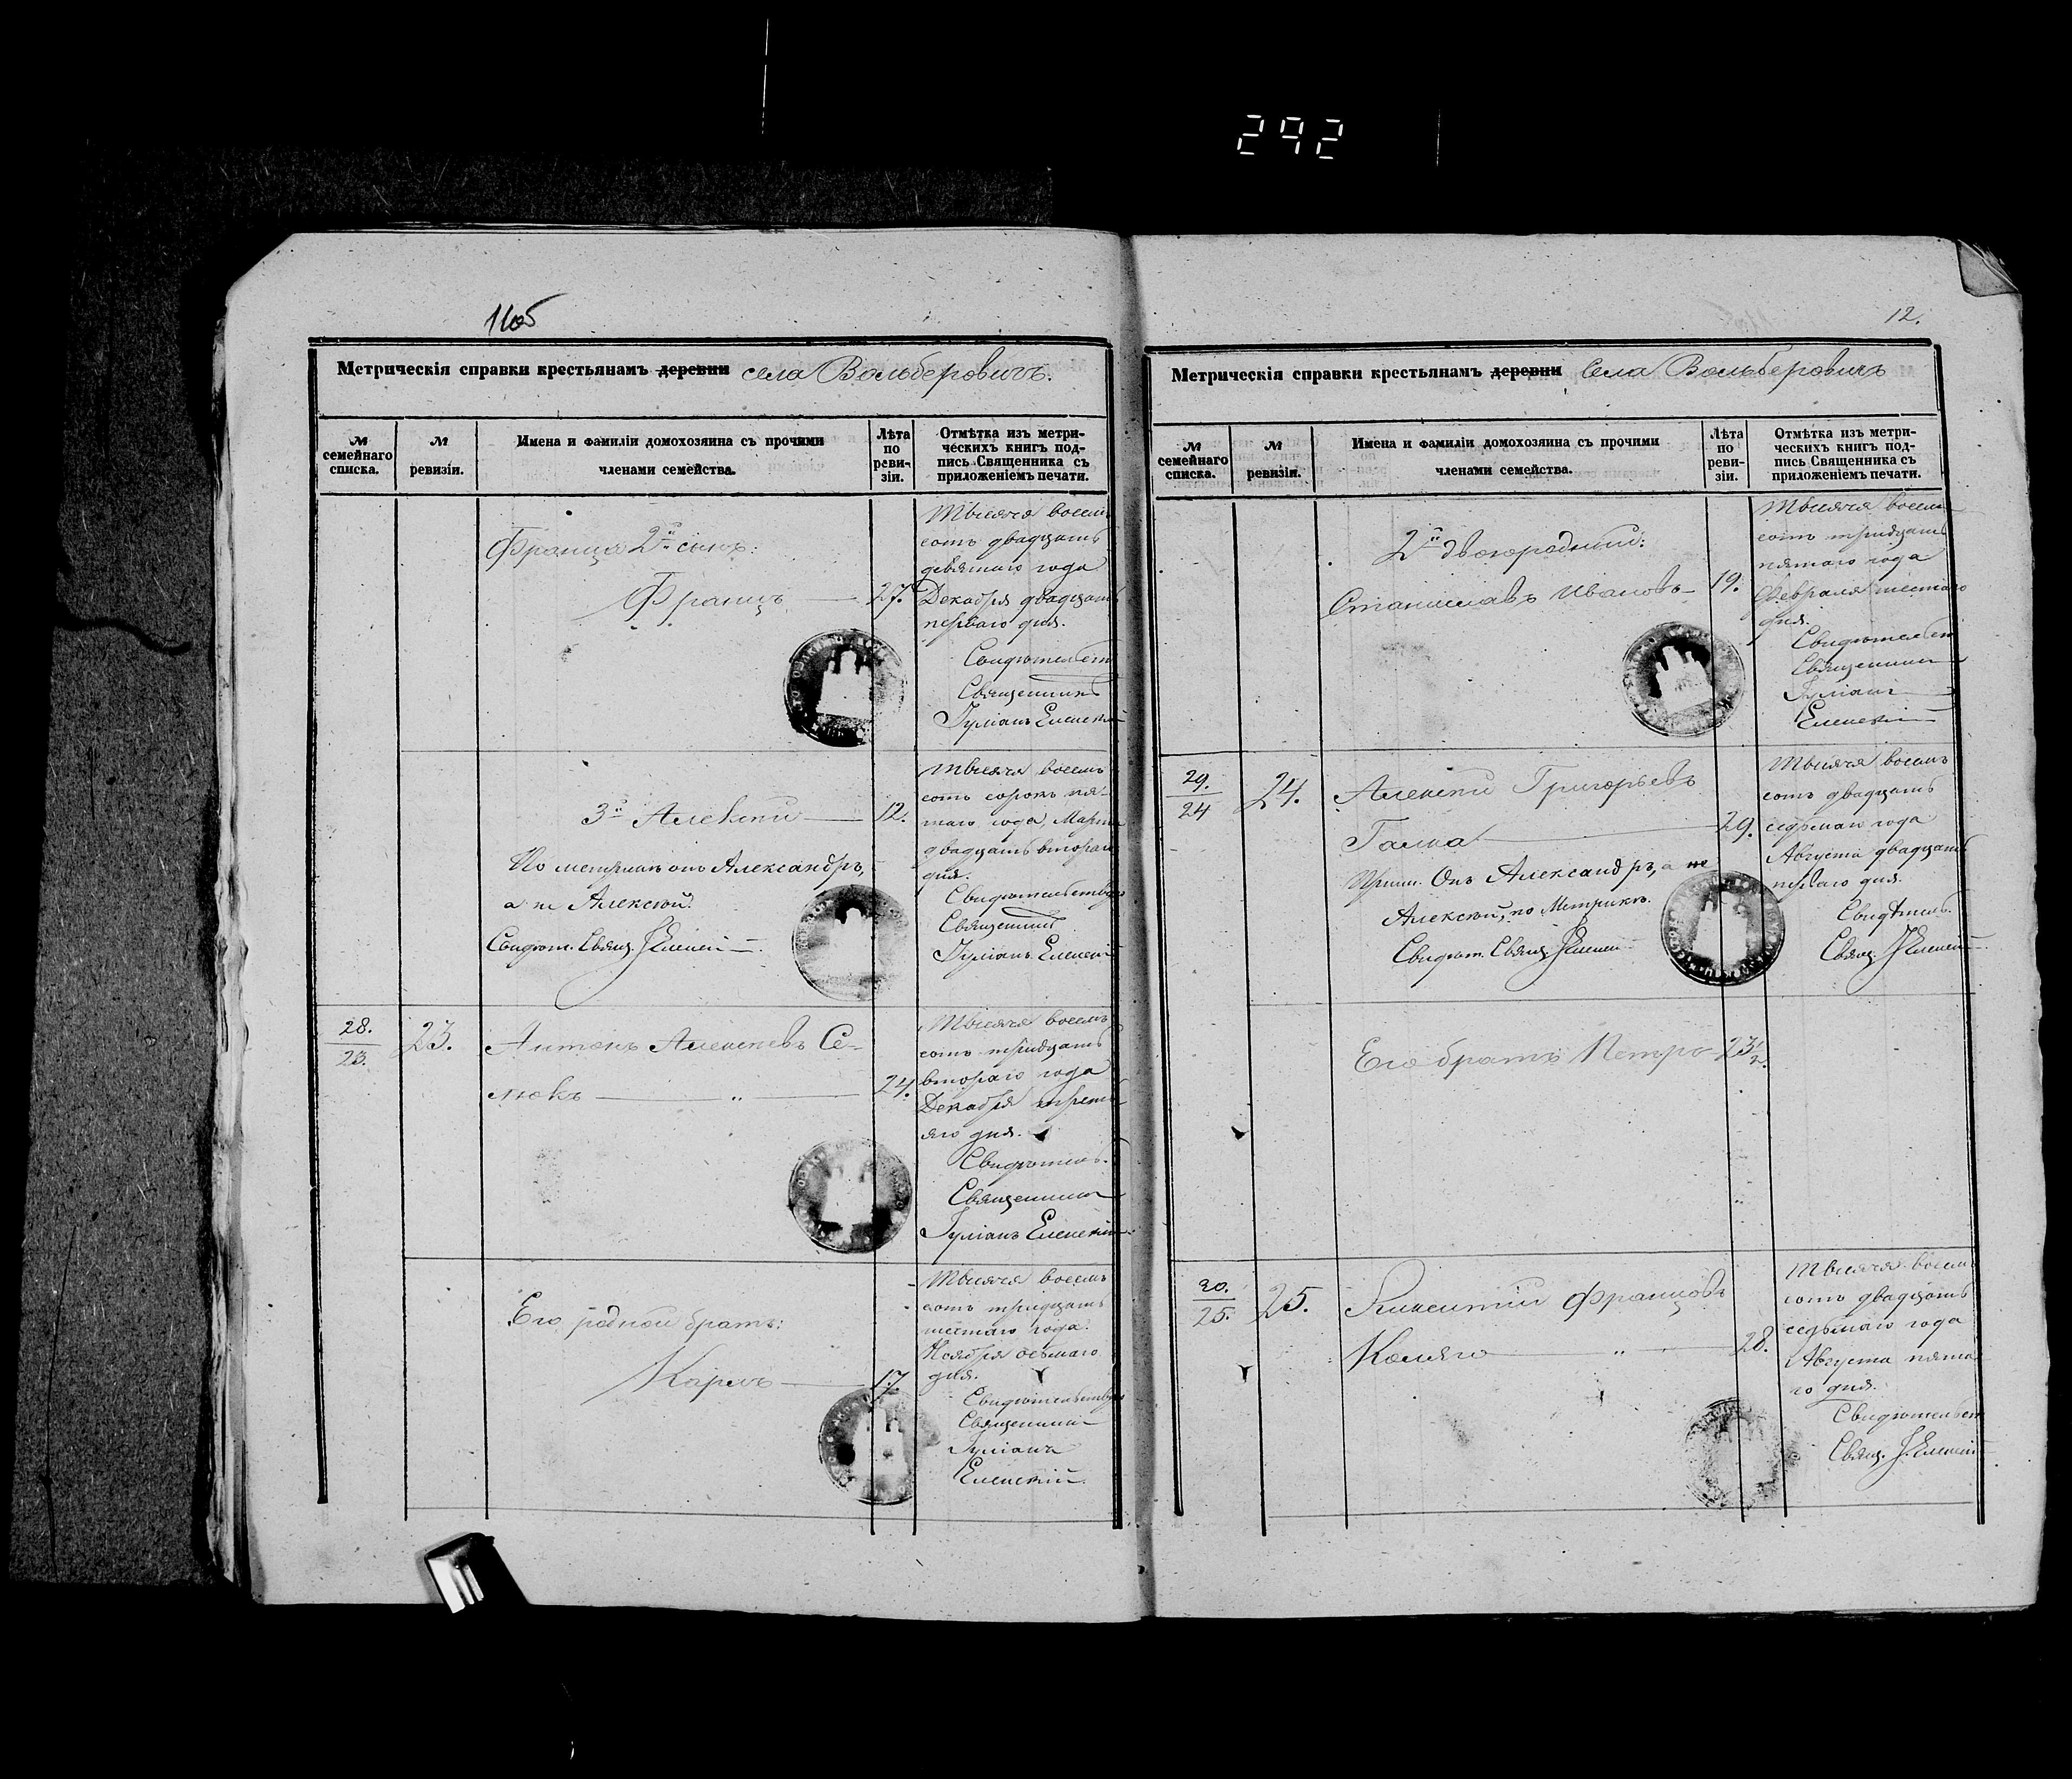 292
1105
Метрическія справки крестьянамъ деревни села Вольберовичъ.
№ семейнаго списка.
№ ревизіи.
Имена и фамиліи домохозяина съ прочими членами семейства.
Лѣта по реви-зіи.
Отмѣтка изъ метри-
ческихъ книгъ под-
пись Священника съ
приложеніемъ печати.
Франца 2й сынъ:
Францъ 27.
Тысяча восемь
сотъ двадцать
девятаго года
Декабря двадцать
перваго дня.
Свидѣтельст
Священникъ
Іуліанъ Еленскій
3й Алексѣй 12.
По метрикѣ онъ Александръ,
а не Алексѣй.
Свидѣт. Свящ. ІЕленскій
Тысяча восемь
сотъ сорокъ пя-
таго года, Марта
двадцать втораго
дня.
Свидѣтельствую
Священникъ
Іуліанъ Еленскій
28.
23.
23.
Антонъ Алексѣевъ Се-
люкъ 24.
Тысяча восемь
сотъ тридцать
втораго года
Декабря треть-
яго дня.
Свидѣтель.
Священникъ
Іуліанъ Еленскій
Его родной братъ:
Карлъ 17
Тысяча восемь
сотъ тридцать
шестаго года.
Ноября осьмаго
дня.
Свидѣтельствую
Священникъ
Іуліанъ
Еленскій.
12.
Метрическія справки крестьянамъ деревни Села Вольберовичъ
№ семейнаго списка.
№ ревизіи.
Имена и фамиліи домохозяина съ прочими членами семейства.
Лѣта по реви-зіи.
Отмѣтка изъ метри-
ческихъ книгъ под-
пись Священника съ
приложеніемъ печати.
2й двоюродный:
Станиславъ Ивановъ 19.
Тысяча восемь
сотъ тридцать
пятаго года
Февраля шестаго
дня.
Свидѣтельст
Священникъ
Іуліанъ
Еленскій
29.
24
24.
Алексѣй Григорьевъ
Галка 29.
Прим. Онъ Александръ, а не
Алексѣй, по Метрикѣ.
Свидѣт. Свящ. ІЕленскій
Тысяча восемь
сотъ двадцать
седьмаго года
Августа двадцать
перваго дня.
Свидѣтель.
Свящ. ІЕленскій
Его братъ Петръ 23½
30.
25.
25.
Викентій Францовъ
Коляго 28.
Тысяча восемь
сотъ двадцать
седьмаго года
Августа пята
го дня.
Свидѣтельст
Свящ. І. Еленскій